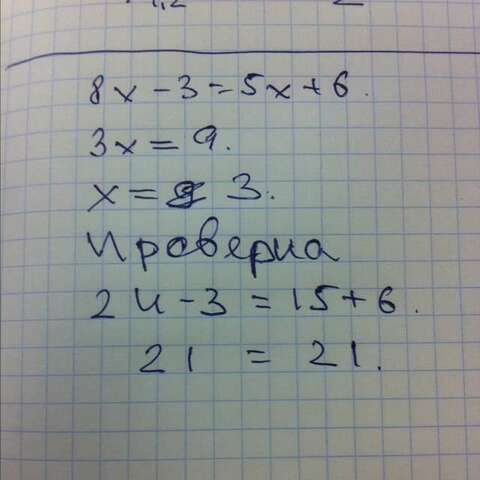 8x - 3 = 5x + 6.
3x = 9.
x = 3.
Проверка
24 - 3 = 15 + 6.
21 = 21.